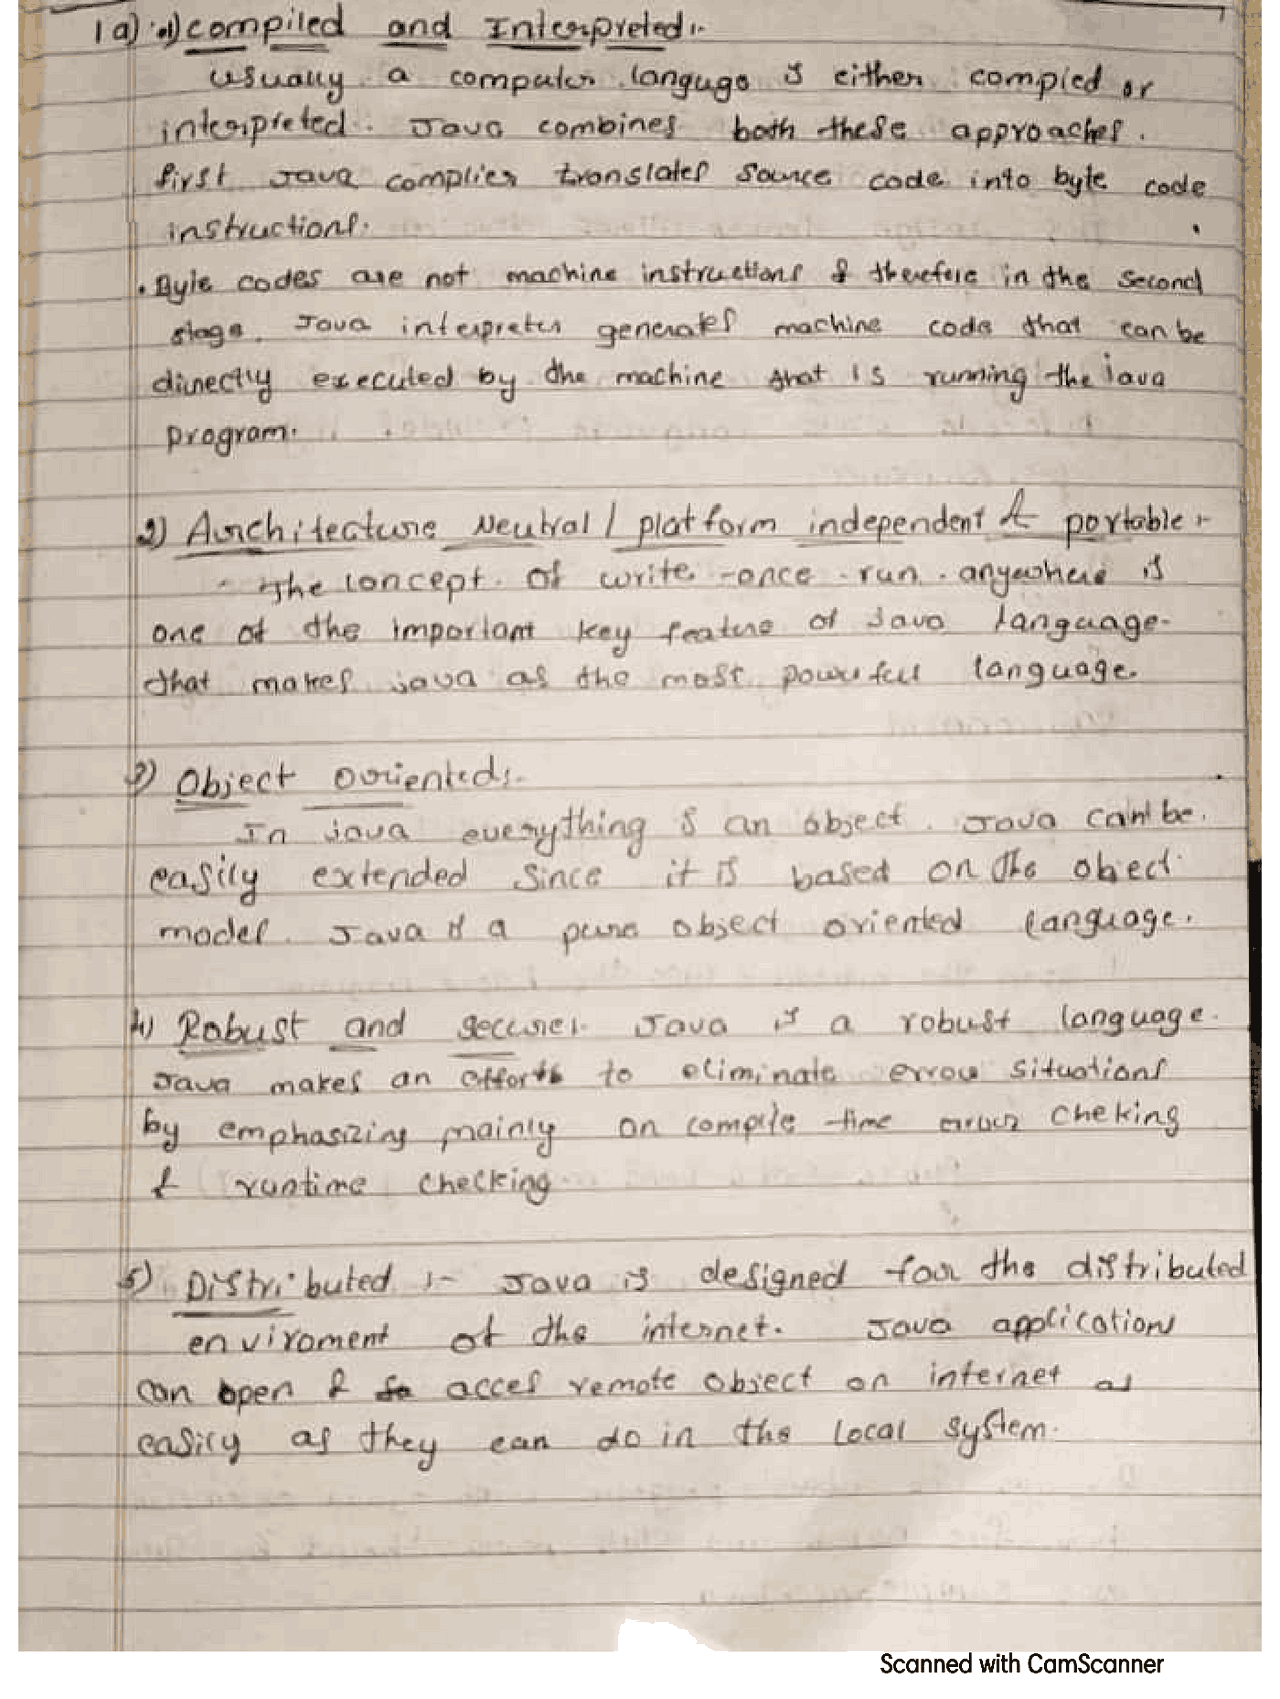 1a) 1) compiled and Interpreted:-
usually a computer langugo is either compied or
interpreted. Java combines both these approaches.
first Java complier translates source code into byte code
instructions.
• Byle codes are not machine instructions & therefore in the second
stage. Java interpreter generates machine code that can be
directly executed by the machine that is running the java
program.
2) Architecture Neutral / platform independent & portable :-
- The concept of write -once - run - anywhere is
one of the important key feature of Java language.
that makes java as the most powerfull language.
3) Object oriented:-
In java everything is an object. Java can be
easily extended since it is based on the obect
model. Java is a pure object oriented language.
4) Robust and secure:- Java is a robust language.
Java makes an efforts to eliminate error situations
by emphasizing mainly on compile -time error cheking
& runtime checking
5) Distributed :- Java is designed for the distributed
enviroment of the internet. Java applications
can open & acces remote object on internet as
easily as they can do in the local system.
Scanned with CamScanner